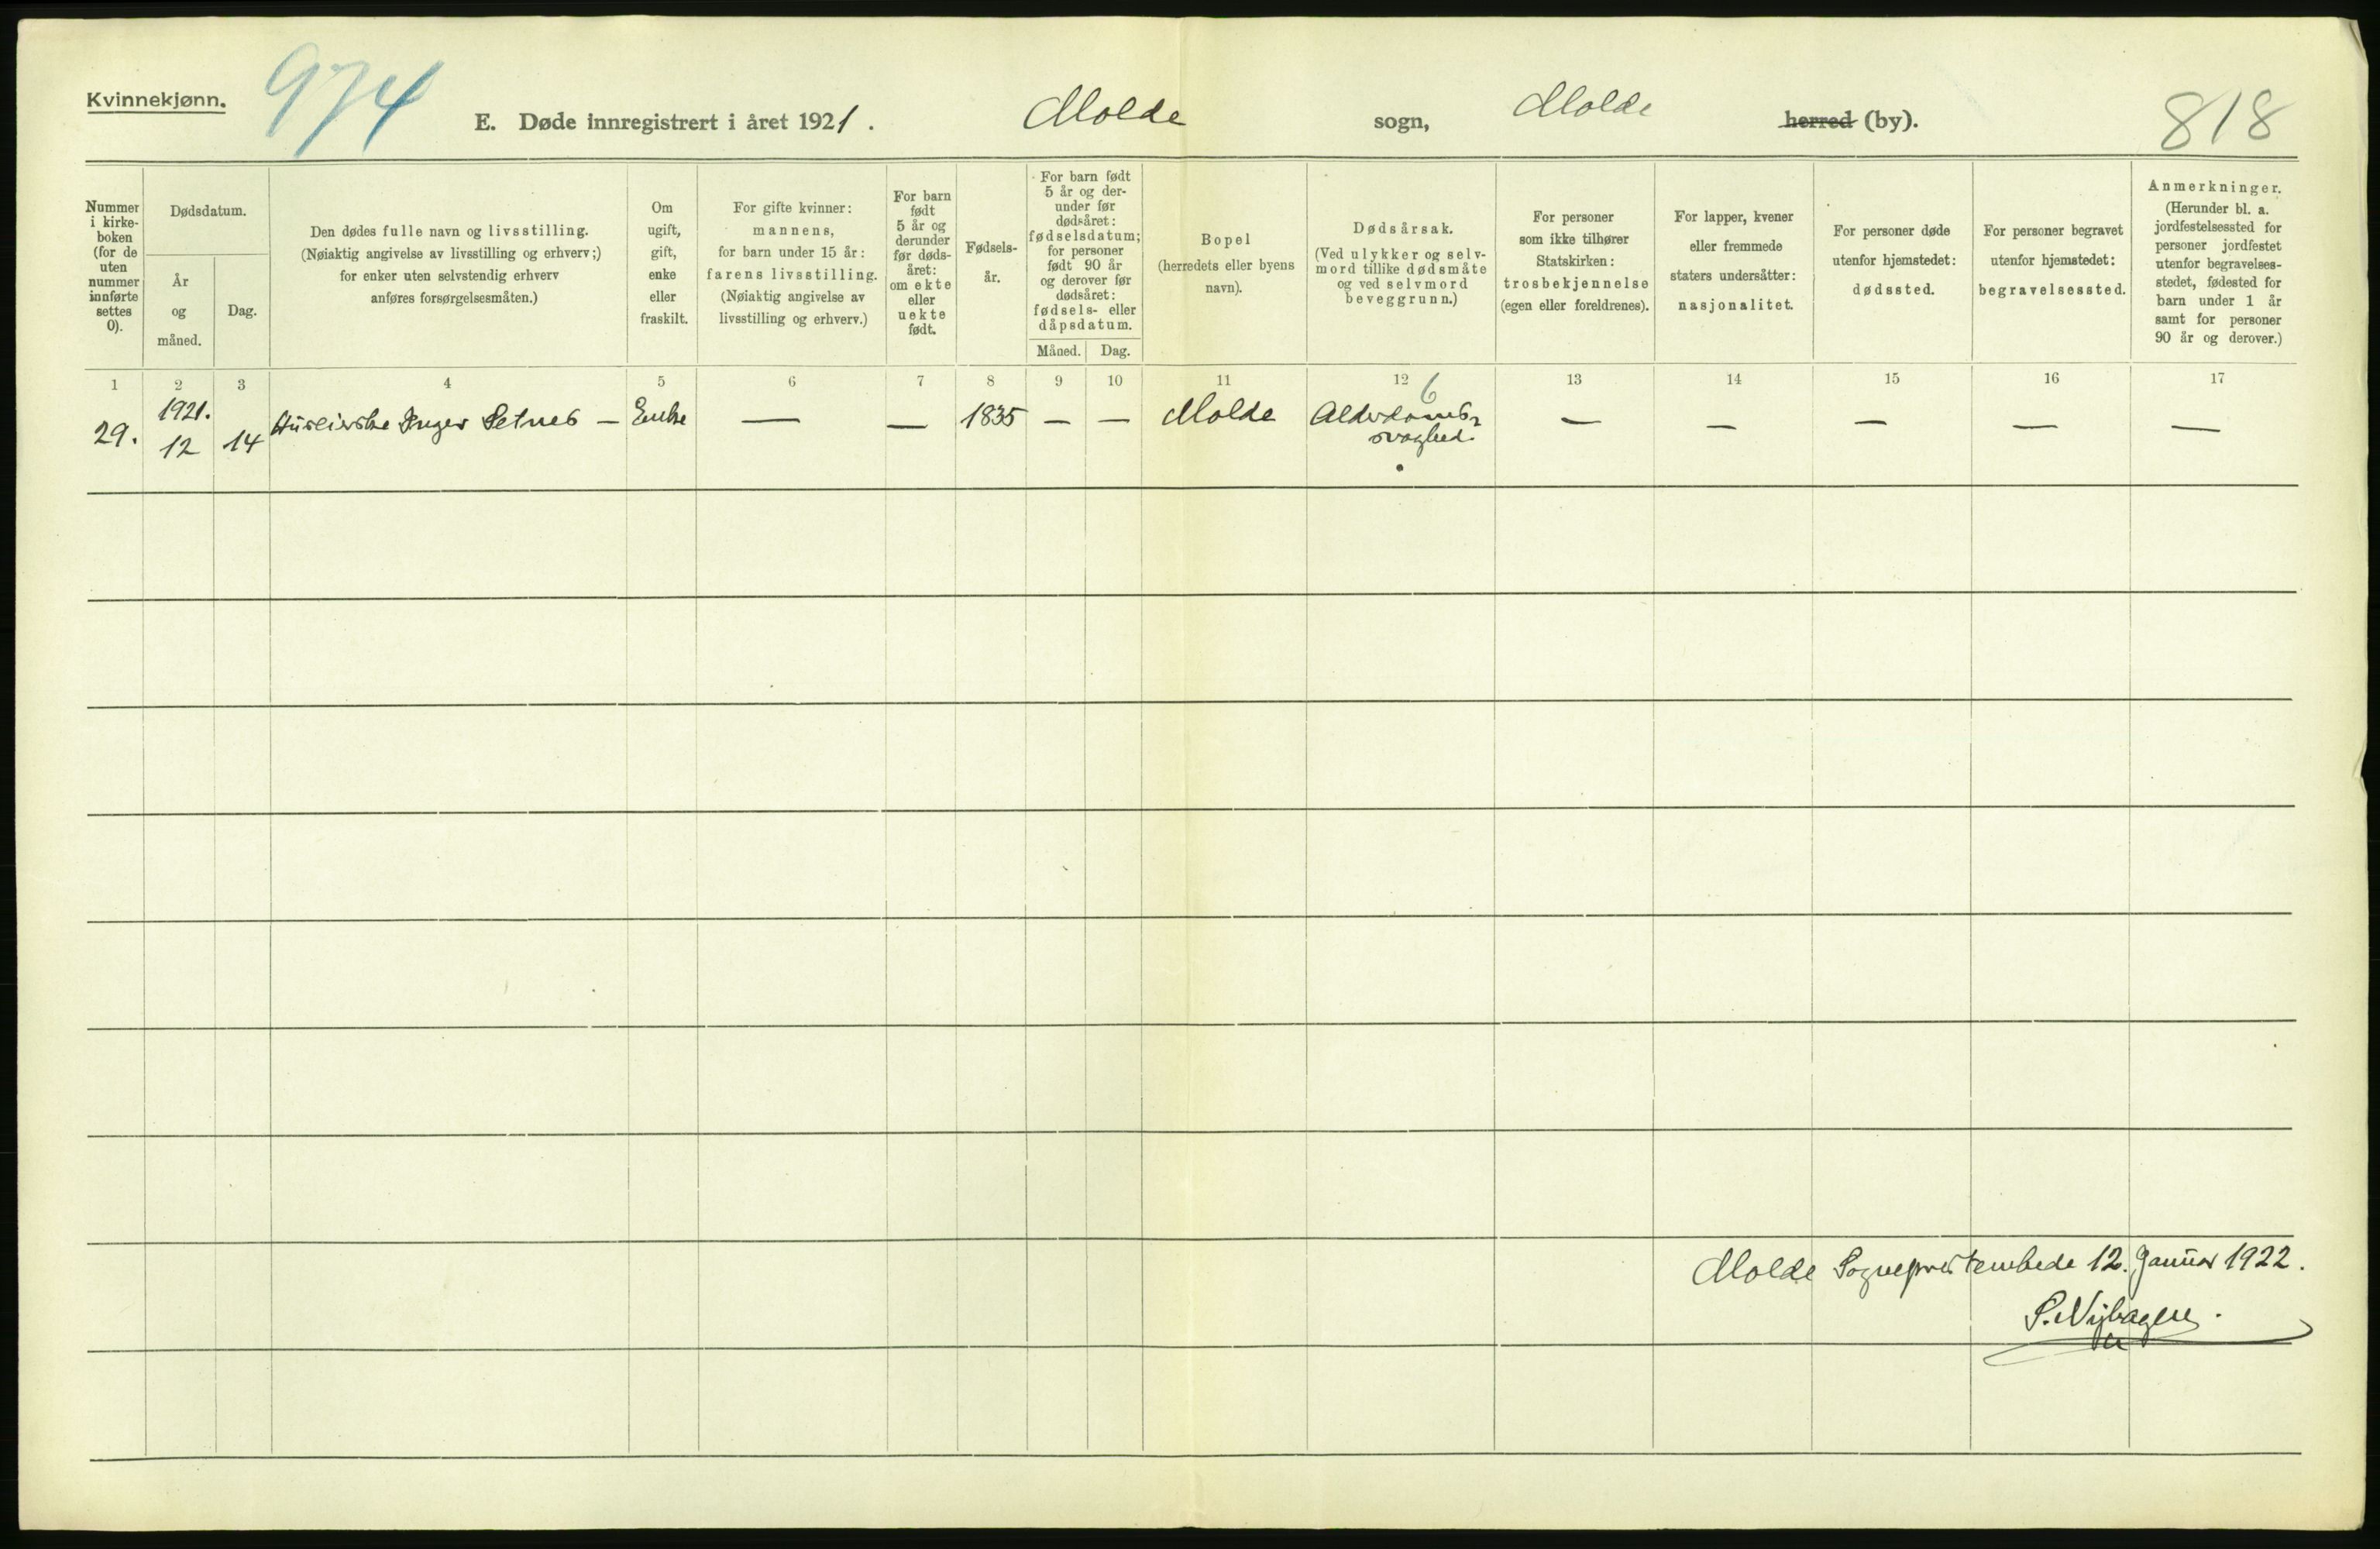 Kvinnekjønn.
974
E. Døde innregistrert i året 1921.
Molde
sogn,
Molde
herred (by).
818
Nummer
i kirke-
boken
(for de
uten
nummer
innførte
settes
0).
Dødsdatum.
År
og
måned.
Dag.
Den dødes fulle navn og livsstilling.
(Nøiaktig angivelse av livsstilling og erhverv;)
for enker uten selvstendig erhverv
anføres forsørgelsesmåten.)
Om
ugift,
gift,
enke
eller
fraskilt.
For gifte kvinner:
mannens,
for barn under 15 år:
farens livsstilling.
(Nøiaktig angivelse av
livsstilling og erhverv.)
For barn
født
5 år og
derunder
før døds-
året:
om ekte
eller
uekte
født.
Fødsels-
år.
For barn født
5 år og der-
under før
dødsåret:
fødselsdatum;
for personer
født 90 år
og derover før
dødsåret:
fødsels- eller
dåpsdatum.
Måned.
Dag.
Bopel
(herredets eller byens
navn).
Dødsårsak.
(Ved ulykker og selv-
mord tillike dødsmåte
og ved selvmord
beveggrunn.)
For personer
som ikke tilhører
Statskirken:
trosbekjennelse
(egen eller foreldrenes).
For lapper, kvener
eller fremmede
staters undersåtter:
nasjonalitet.
For personer døde
utenfor hjemstedet:
dødssted.
For personer begravet
utenfor hjemstedet:
begravelsessted.
Anmerkninger.
(Herunder bl. a.
jordfestelsessted for
personer jordfestet
utenfor begravelses-
stedet, fødested for
barn under 1 år
samt for personer
90 år og derover.)
1 2 3 4 5 6 7 8 9 10 11 12 13 14 15 16 17
6
1921.
29. 12 14 Huseierske Inger Setnes — Enke — — 1835 — — Molde Alderdoms-
svaghed.
— — — — —
Molde Sogneprestembede 12. Januar 1922.